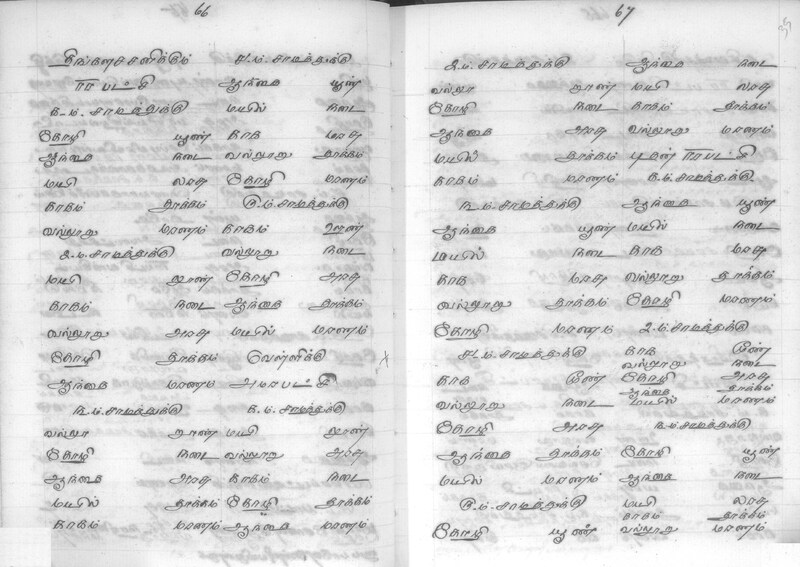 66
திங்களசனிக்கும் ச.ம.சாமத்துக்கு
ஆந்தை ஊண்
க.ம.சாமத்துக்கு மயில் நடை
கோழி ஊண் காக
ஆந்தை நடை வல்லூறு தூக்கம்
மயி கோழி மரணம்
காகம் தூக்கம் ரு.ம.சாமத்துக்கு
வல்லூறு மரணம் காகம் ஊண்
உ.ம.சாமத்துக்கு வல்லூறு நடை
மயி ஊண் கோழி அரசு
காகம் நடை ஆந்தை தூக்கம்
வல்லூறு அரசு மயில் மரணம்
கோழி தூக்கம் வெள்ளிக்கு
ஆந்தை மரணம் அமரபட்சி
ந.ம.சாமத்துக்கு க.ம.சாமத்துக்கு
வல்லூ ஊண் மயி ஊண்
கோழி நடை வல்லூறு அரசு
ஆந்தை அரசு காகம் நடை
மயில் தூக்கம் கோழி தூக்கம்
காகம் மரணம் ஆந்தை மரணம்
67
உ.ம.சாமத்துக்கு ஆந்தை நடை
வல்லூ ஊண் மயி
கோழி நடை காகம் தூக்கம்
ஆந்தை அரசு வல்லூறு மரணம்
மயில் தூக்கம்
காகம் மரணம் க.ம.சாமத்துக்கு
ந.ம.சாமத்துக்கு ஆந்தை ஊண்
ஆந்தை ஊண் மயில் நடை
மயில் நடை காக
காக வல்லூறு தூக்கம்
வல்லூறு தூக்கம் கோழி மரணம்
கோழி மரணம் உ.ம.சாமத்துக்கு
ச.ம.சாமத்துக்கு காக ஊண்
வல்லூறு நடை
காக ஊண் கோழி அரசு
ஆந்தை தூக்கம்
வல்லூறு நடை மயில் மரணம்
கோழி அரசு ந.ம.சாமத்துக்கு
ஆந்தை தூக்கம் கோழி ஊண்
மயில் மரணம் ஆந்தை நடை
ரு.ம.சாமத்துக்கு மயி
காகம் தூக்கம்
கோழி ஊண் வல்லூறு மரணம்